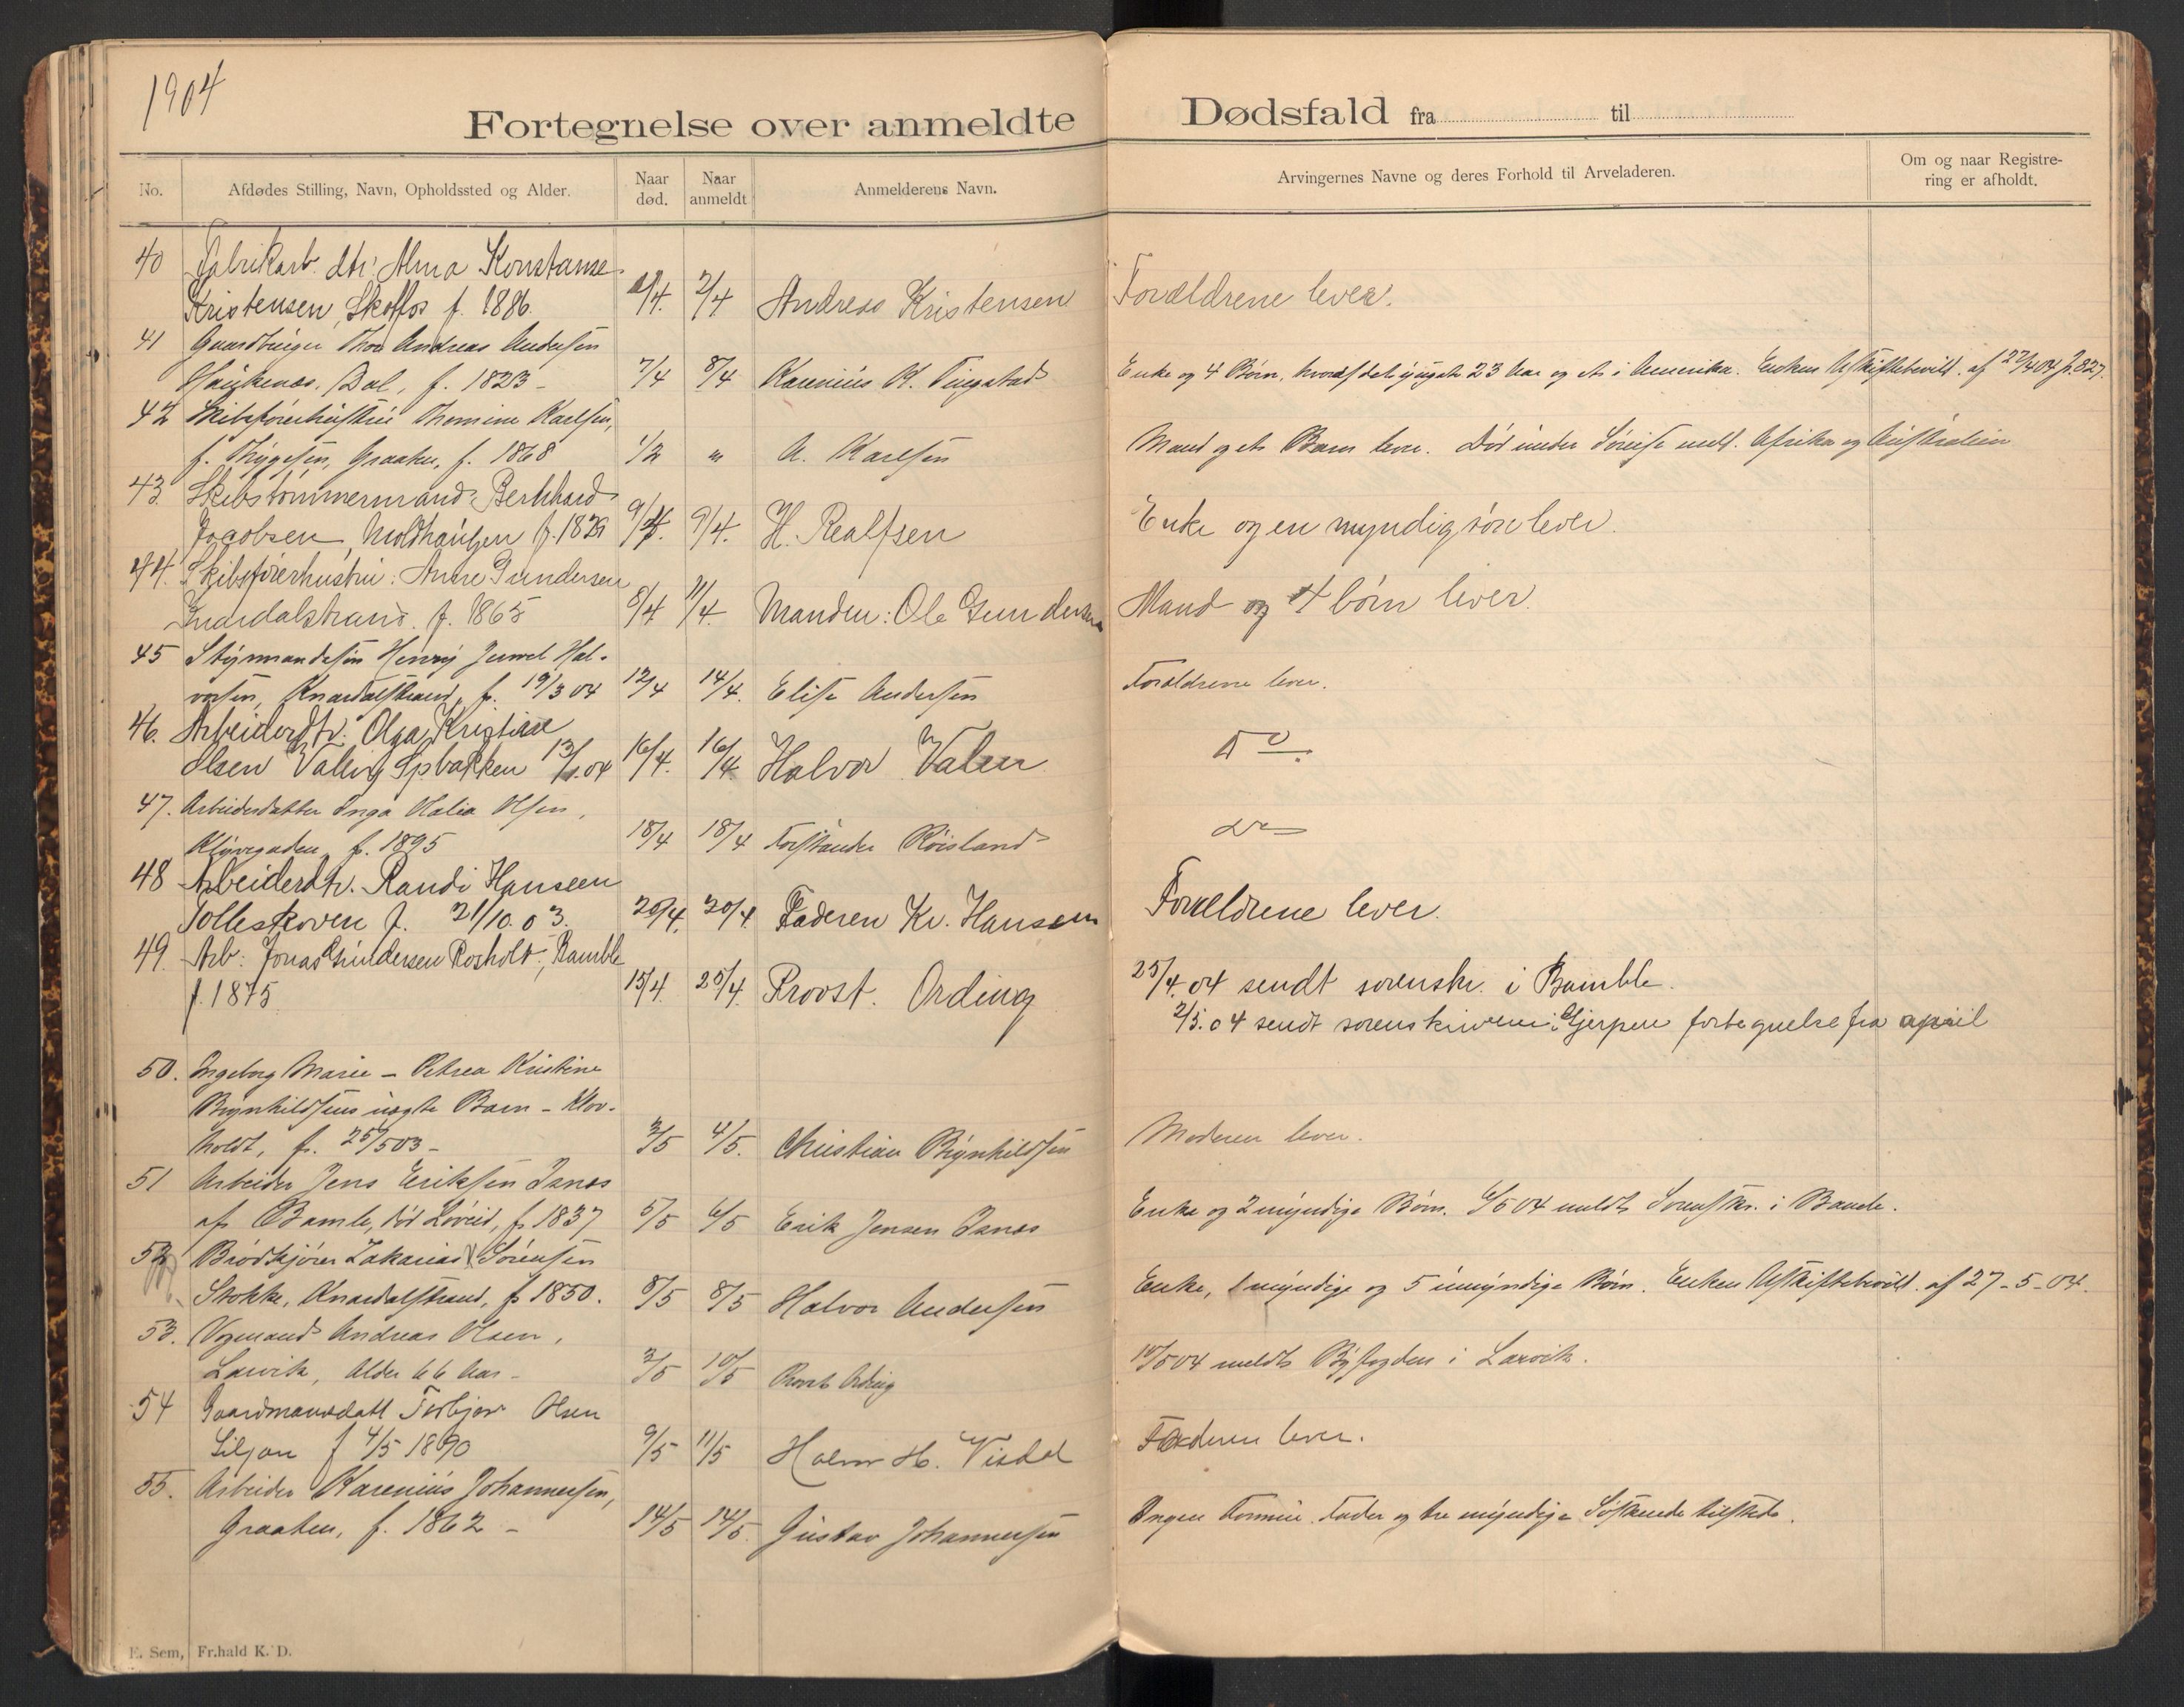 1904
Fortegnelse over anmeldte Dødsfald fra til
No. Afdødes Stilling, Navn, Opholdssted og Alder. Naar død. Naar anmeldt Anmelderens Navn. Arvingernes Navne og deres Forhold til Arveladeren. Om og naar Registrering er afholdt.
40 Fabrikarb. dtr: Alma Konstanse
Kristensen, Skotfos f. 1886. 2/4 Andreas Kristensen Forældrene lever.
41 Gaardbruger Thor Andreas Andersen
Haukenæs, Bøl, f. 1823 - 7/4 8/4 Karenius K. Enke og 4 Børn, hvoraf det yngste 23 Aar og et i Amerika. Enken Uskiftebevild. af 27/4 04
42 Skibsførerhustru Thomine Karlsen,
f. Thygesen, Graaten, f. 1868 1/2 " A. Karlsen Mand og et Barn lever. Død under Søreise mell. Afrika og Australien
43. Skibstømmermand Bernhard
Jacobsen, Moldhaugen f. 1829 9/4 9/4. H. Realfsen Enke og en myndig søn lever.
44. Skibsførerhustru: Anne Gundersen
f. 1865 8/4 11/4. Manden: Ole Gundersen Mand og 4 børn lever.
45 Styrmandssøn Henry Juvel Hal-
vorsen, Knardalstrand, f. 19/3 04 12/4 14/4. Elise Andersen Forældrene lever.
46. Arbeiderdtr: Olga Kristine
Olsen Valen, 13/1.04 16/4. 16/4 Halvor Valen Do
47. Arbeiderdatter Inga Olsen,
Klyvegaden, f. 1895 18/4 18/4 Forstander Røisland do
48 Arbeiderdtr. Randi Hansen
Tolleskoven f. 21/10.03. 20/4. 20/4 Faderen Kr. Hansen Forældrene lever.
49. Arb: Jonas Gundersen Rosholt, Bamble
f. 1875 15/4. 25/4. Provst. Ording 25/4.04 sendt sorenskr. i Bamble.
2/5.04 sendt sorenskriveren i Gjerpen fortegnelse fra april
50. Ingeborg Marie - Petrea Kristine
Brynhildsens uægte Barn - Klov-
holdt, f. 25/5 03 - 3/5 4/5. Christian Brynhildsen Moderen lever.
51 Arbeider Jens Eriksen Isnæs
af Bamle, død Løveid, f. 1837 5/5 6/5 Erik Jensen Isnæs Enke og 2 myndige Børn. 6/5 04 meldt Sorenskr. i Bamle.
52 Brødkjører Zakarias Sørensen
Stokke, Knardalstrand, f. 1850. 8/5 8/5 Halvor Andersen Enke, 1 myndige og 5 umyndige Børn. Enken Uskiftebevild. af 27-5-04.
53. Vognmand Andreas Olsen,
Larvik, Alder 66 Aar - 3/5 10/5 Provst Ording 10/5 04 meldt Byfogden i Larvik.
54 Gaardmandsdatt Torbjør Olsen
Siljan f 4/5 1890 9/5 11/5 Halvor H. Visdal Faderen lever.
55. Arbeider Karenius Johannesen,
Graaten, f. 1862 - 14/5 14/5. Gustav Johannesen Ingen Formue. Fader og tre myndige Søskende tilstede.
E. Sem, Fr.hald K. D.